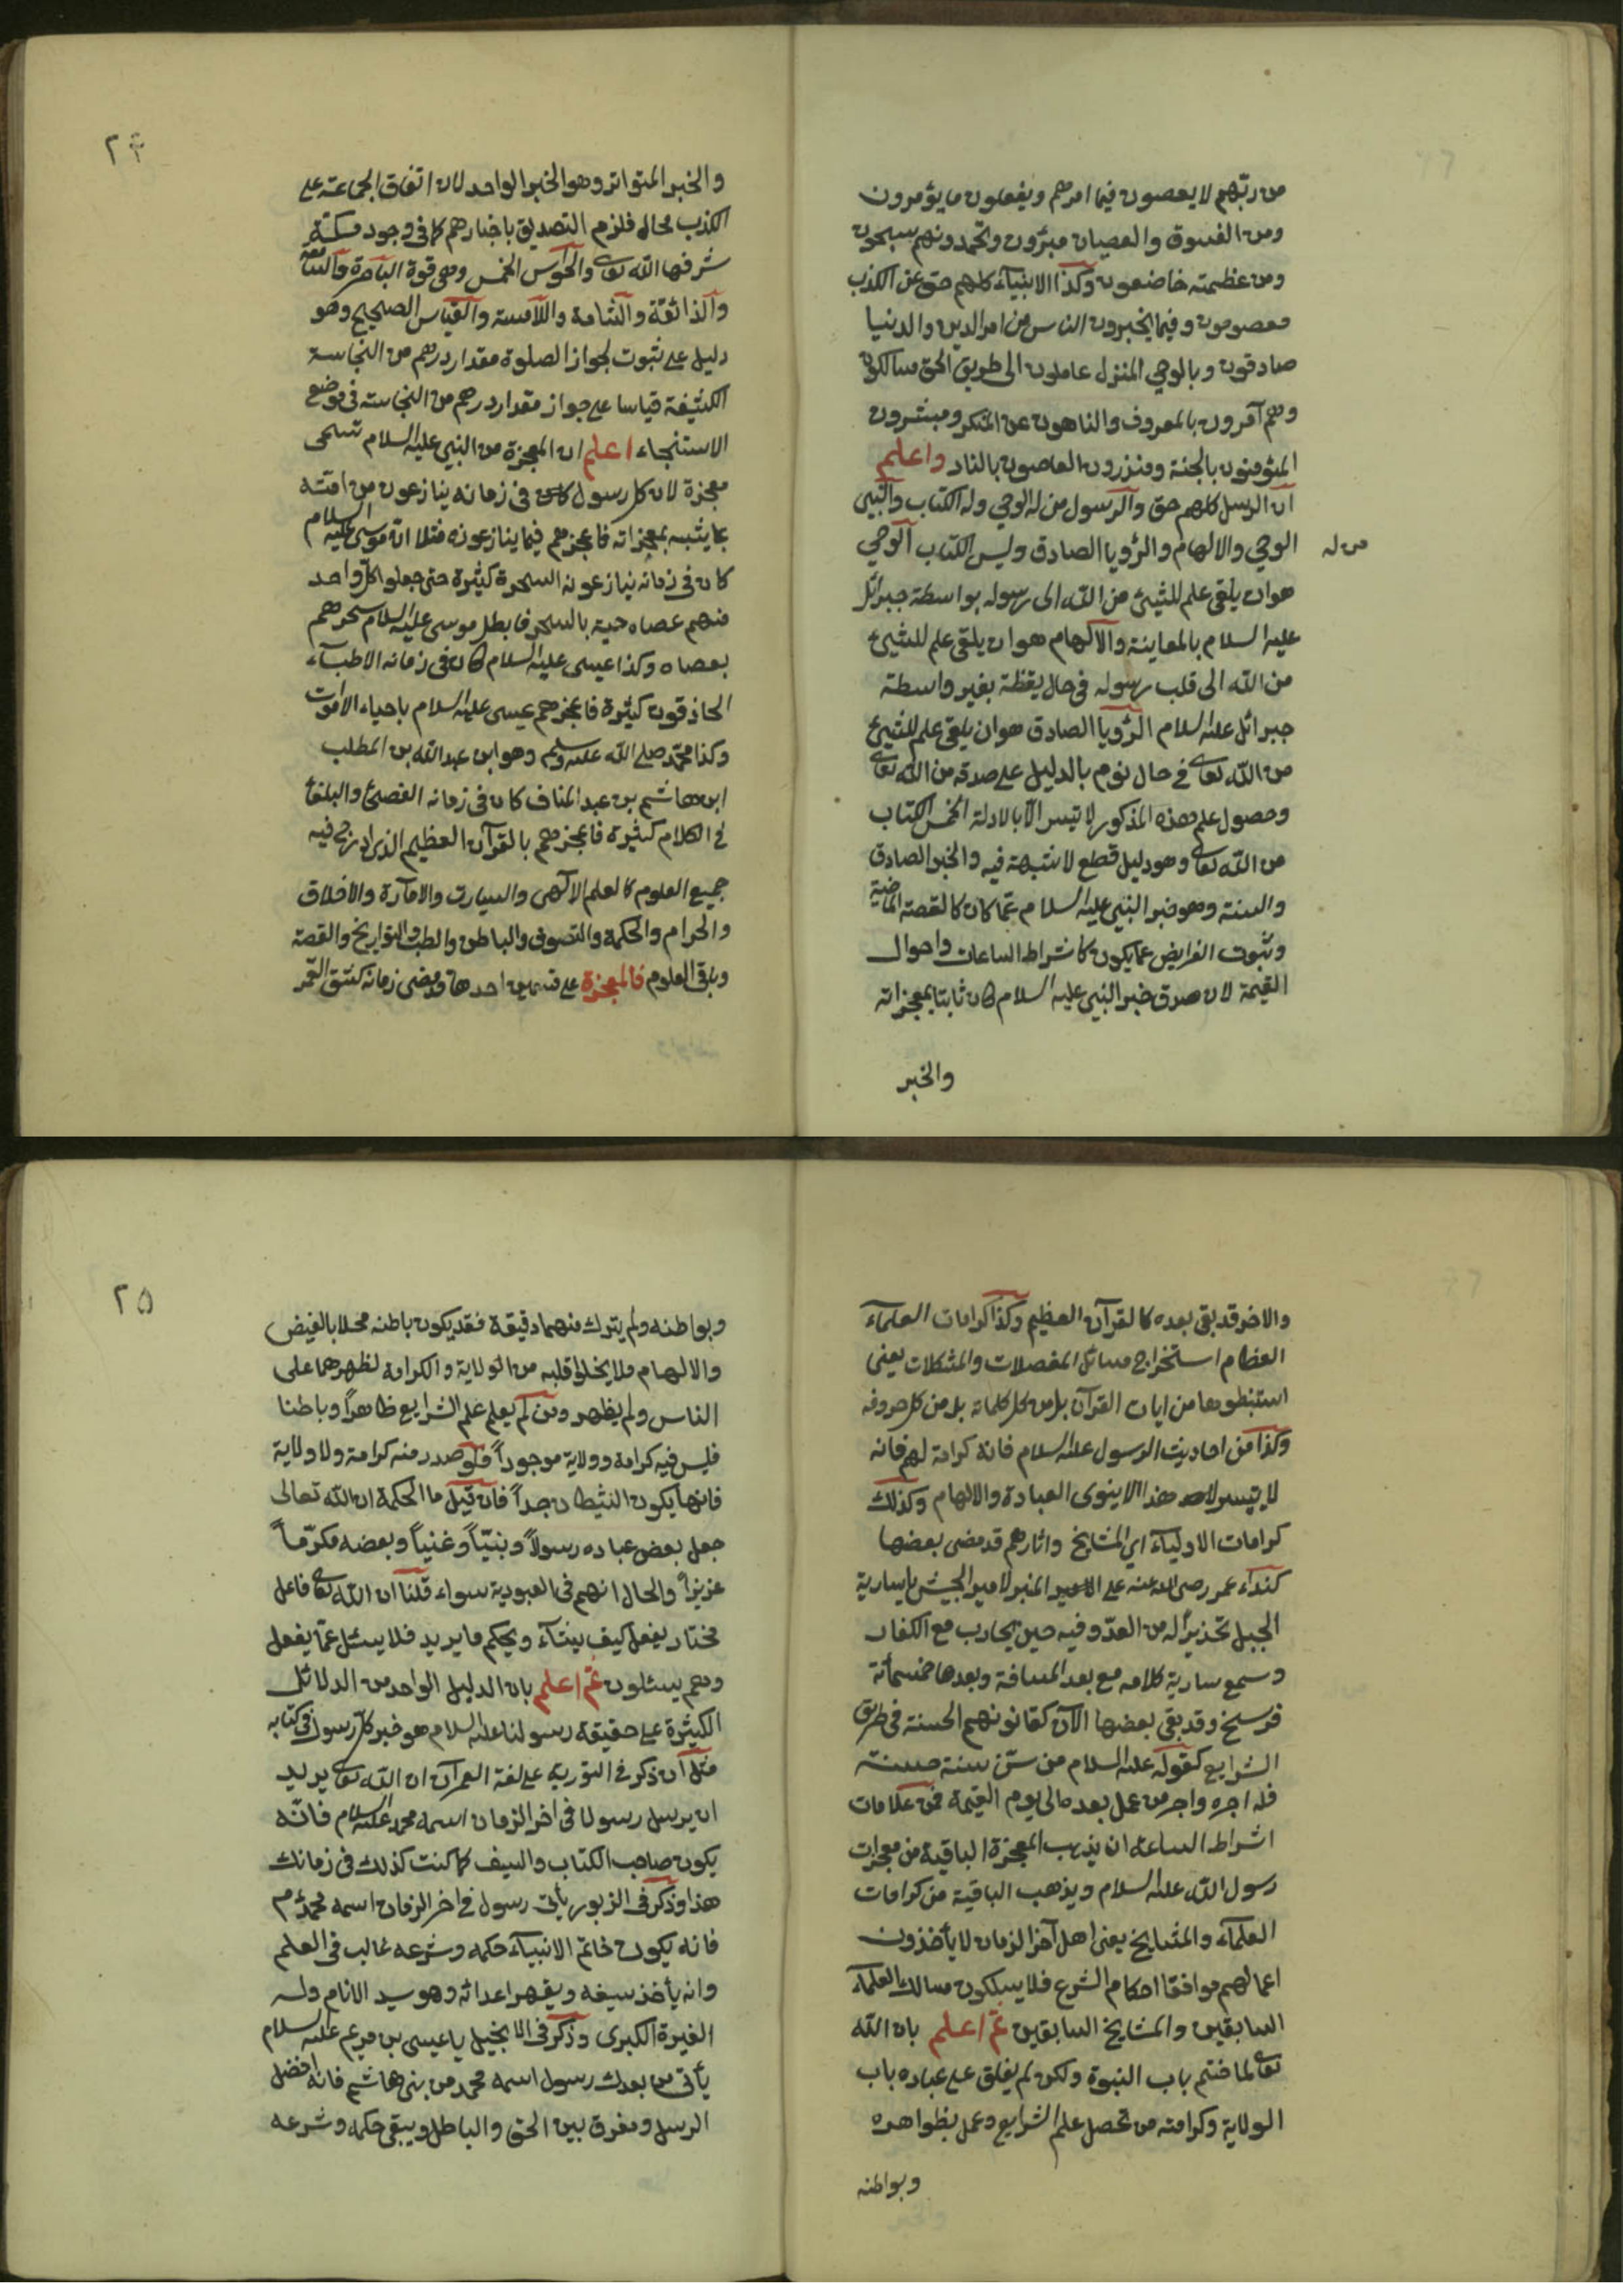 من ربهم لا يعصون فيما امرهم ويفعلون ما يؤمرون
ومن الفسوق والعصيان مبرؤن وبحمدونهم سبحون
ومن عظمته خاضعون وكذا الانبياء كلهم حق عن الكذب
معصومون وفيما يخبرون الناس من امر الدين والدنيا
صادقون وبالوحي المنزل عاملون الى طريق الحق سالكون
وهم آمرون بالمعروف والناهون عن المنكر ومبشرون
المؤمنون بالجنة ومنذرون العاصون بالنار واعلم
ان الرسل كلهم حق والرسول من له الوحي وله الكتاب والنبي
من له
الوحي والالهام والرؤيا الصادق وليس الكتاب الوحي
هوان يلقى علم للشيئ من الله الى رسوله بواسطة جبرائل
عليه السلام بالمعاينة والالهام هوان يلقى علم للشيئ
من الله الى قلب رسوله في حال يقظة بغير واسطة
جبرائل عليه السلام الرؤيا الصادق هوان يلقى علم للشيئ
من الله تعالى في حال نوم بالدليل على صدقه من الله تعالى
وحصول علم هذه المذكور لا تيسر الا بالادلة الخمس الكتاب
من الله تعالى وهو دليل قطع لا شبهة فيه والخبر الصادق
والسنة وهو خبر النبي عليه السلام عما كان كالقصة الماضية
وثبوت الفرايض عما يكون كاشراط الساعات واحوال
القيمة لان صدق خبر النبي عليه السلام كان ثابتا بمعجزاته
والخبر
٢٤
والخبر المتواتر وهو الخبر الواحد لان اتفاق الجماعة على
الكذب محال فلزم التصديق باخبارهم كما في وجود مكة
شرفها الله تعالى والحواس الخمس وهي قوة الباصرة والسامعة
والذائقة والشامة واللامسة والقياس الصحيح وهو
دليل على ثبوت لجواز الصلوة مقدار درهم من النجاسة
الكثيفة قياسا على جواز مقدار درهم من النجاسة في موضع
الاستنجاء اعلم ان المعجزة من النبي عليه السلام تسمى
معجزة لان كل رسول كان في زمانه ينازعون من امته
بما يثبه بمعجزاته فاعجزهم فيما ينازعونه مثلا ان موسى عليه السلام
كان في زمانه ينازعونه السحرة كثيرة حتى جعلوا كل واحد
منهم عصاه حية بالسحر فابطل موسى عليه السلام سحرهم
بعصاه وكذا عيسى عليه السلام كان في زمانه الاطباء
الحاذقون كثيرة فاعجزهم عيسى عليه السلام باحياء الاموات
وكذا محمد صلى الله عليه وسلم وهو ابن عبد الله بن المطلب
ابن هاشم بن عبد المناف كان في زمانه الفصحى والبلغاء
في الكلام كثيرة فاعجزهم بالقرآن العظيم الذى اندرج فيه
جميع العلوم كالعلم الالهى والسيارت والامارة والاخلاق
والحرام والحكمة والتصوف والباطن والطب والتواريخ والقصة
وباقى العلوم فالمعجزة على قسمين احدها قد مضى زمانه كشق القمر
والاخر قد بقى بعده كالقرآن العظيم وكذا كرامات العلماء
العظام استخراج مسائل المفصلات والمشكلات يعنى
استنبطوها من ايات القرآن بل من كل كلماته بل من كل حروفه
وكذا من احاديث الرسول عليه السلام فانه كرامة لهم فانه
لا يتيسر لاحد هذا الا بنوى العبادة والالهام وكذلك
كرامات الاولياء اى المشايخ واثارهم قد مضى بعضها
كنداء عمر رضى الله عنه على المنبر لامير الجيش يا سارية
الجبل تحذيرا له من العدو فيه حين يحارب مع الكفار
وسمع سارية كلامه مع بعد المسافة وبعدها خمسمائة
فرسخ وقد بقى بعضها الآن كقانونهم الحسنة في طريق
الشرايع كقوله عليه السلام من سن سنة حسنة
فله اجره واجر من عمل بعده الى يوم القيمة فمن علامات
اشراط الساعة ان يذهب المعجزة الباقية من معجزات
رسول الله عليه السلام ويذهب الباقية من كرامات
العلماء والمشايخ يعنى اهل آخر الزمان لا يأخذون
اعمالهم موافقا احكام الشرع فلا يسلكون مسالك العلماء
السابقين والمشايخ السابقين ثم اعلم بان الله
تعالى لما ختم باب النبوة ولكن لم يغلق على عباده باب
الولاية وكرامته من تحصل علم الشرايع وعمل بظواهره
وبواطنه
٢٥
وبواطنه ولم يترك منهما دقيقة فقد يكون باطنه محلا بالفيض
والالهام ولا يخلوا قلبه من الولاية والكرامة لظهرهما على
الناس ولم يظهر ومن لم يعلم علم الشرايع ظاهرا وباطنا
فليس فيه كرامة وولاية موجودا فلو صدر منه كرامة ولا ولاية
فانها يكون الشيطان جدا فان قيل ما الحكمة ان الله تعالى
جعل بعض عباده رسولا ونبيا وغنيا وبعضه مكرما
عزيزا والحال انهم في العبودية سواء قلنا ان الله تعالى فاعل
مختار يفعل كيف يشاء ويحكم ما يريد فلا يسئل عما يفعل
وهم يسئلون ثم اعلم بان الدليل الواحد من الدلائل
الكثيرة على حقيقة رسولنا عليه السلام هو خبر كل رسول في كتابه
مثل ان ذكر في التورية على لغة العبران ان الله تعالى يريد
ان يرسل رسولا في اخر الزمان اسمه محمد عليه السلام فانه
يكون صاحب الكتاب والسيف كما كنت كذلك في زمانك
هذا وذكر في الزبور يأتى رسول في اخر الزمان اسمه محمد م
فانه يكون خاتم الانبياء حكمه وشرعه غالب في العلم
وانه يأخذ سيفه ويقهر اعدائه وهو سيد الانام وله
الغيرة الكبرى وذكر في الانجيل يا عيسى بن مريم عليه السلام
يأتى من بعدك رسول اسمه محمد من بنى هاشم فانه افضل
الرسل ومفرق بين الحق والباطل ويبقى حكمه وشرعه